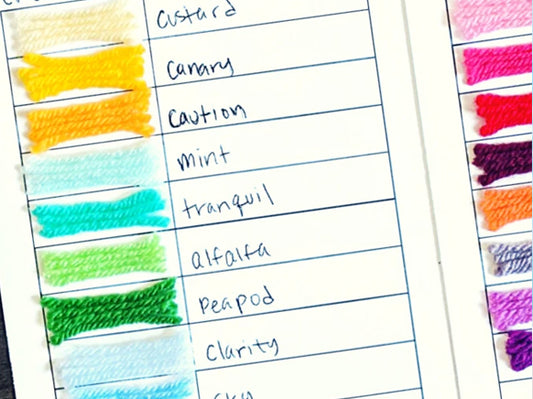 custard
canary
caution
mint
tranquil
alfalfa
peapod
clarity
sky